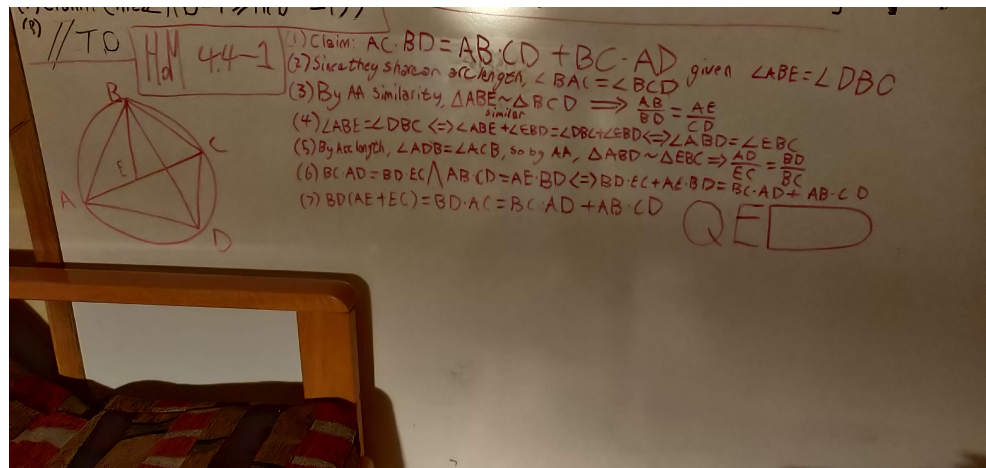 (8)
//TD
HdM 4.4-1
(1) Claim: AC·BD=AB·CD +BC·AD given ∠ABE=∠DBC
(2) Since they share an arc length, ∠BAC=∠BCD
(3) By AA similarity, △ABE~△BCD ⟹ AB/BD=AE/CD
similar
(4) ∠ABE=∠DBC <=> ∠ABE+∠EBD=∠DBC+∠EBD<=>∠ABD=∠EBC
(5) By Arc length, ∠ADB=∠ACB, so by AA, △ABD~△EBC ⟹ AD/EC=BD/BC
(6) BC·AD=BD·EC ∧ AB·CD=AE·BD<=>BD·EC+AE·BD=BC·AD+AB·CD
(7) BD(AE+EC)=BD·AC=BC·AD+AB·CD
QED
B
C
E
A
D